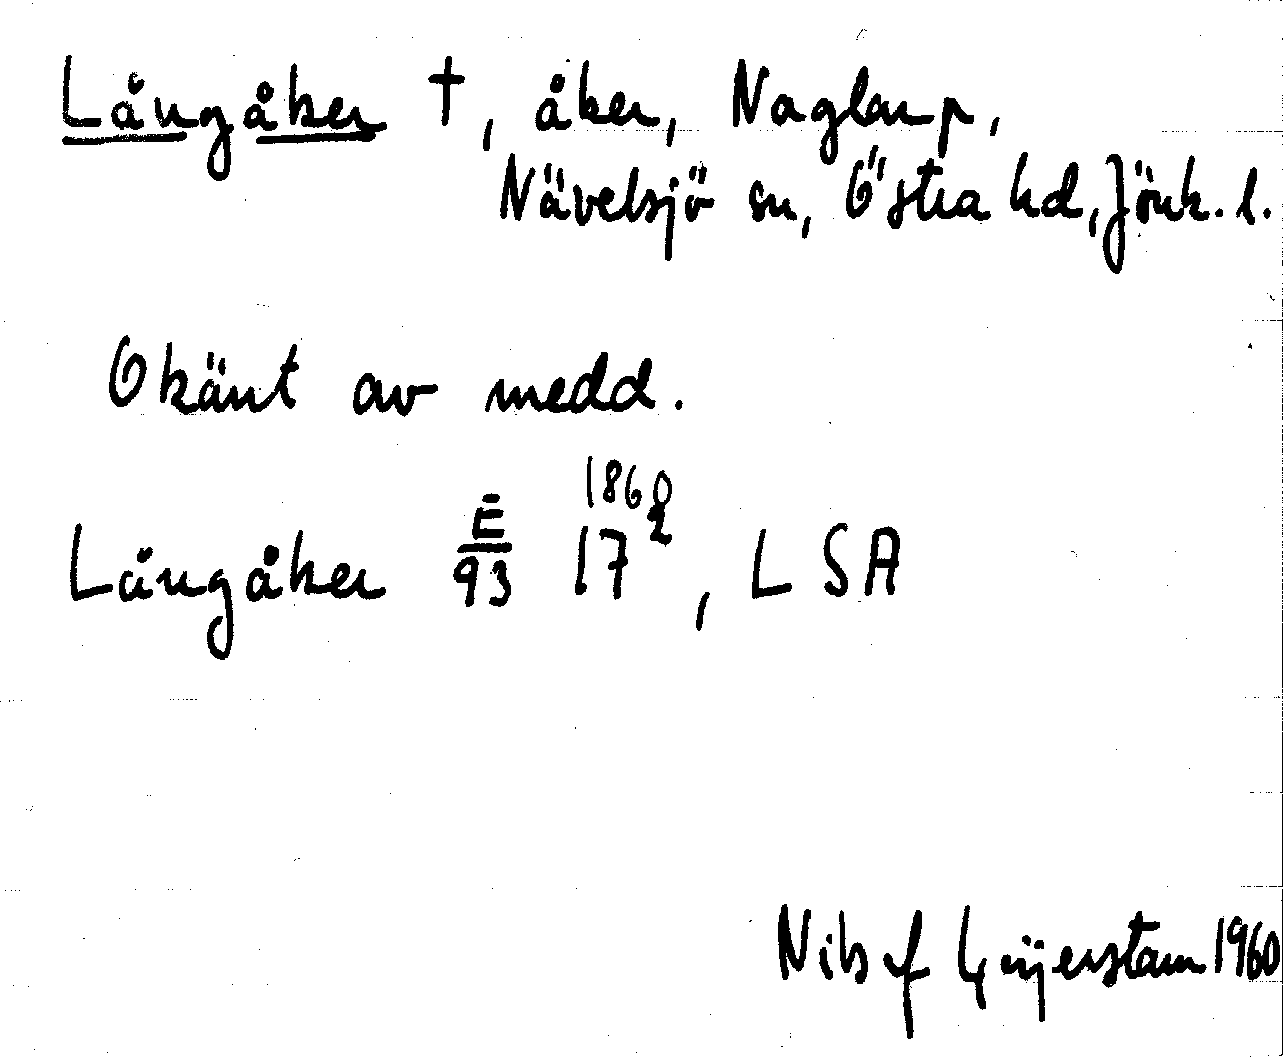 Långåker †, åker, Naglarp,
Nävelsjö sn, Östra hd, Jönk. l.
Okänt av medd.
1860
Långåker E/93 17 2, LSA
Nils f Geijerstam 1960